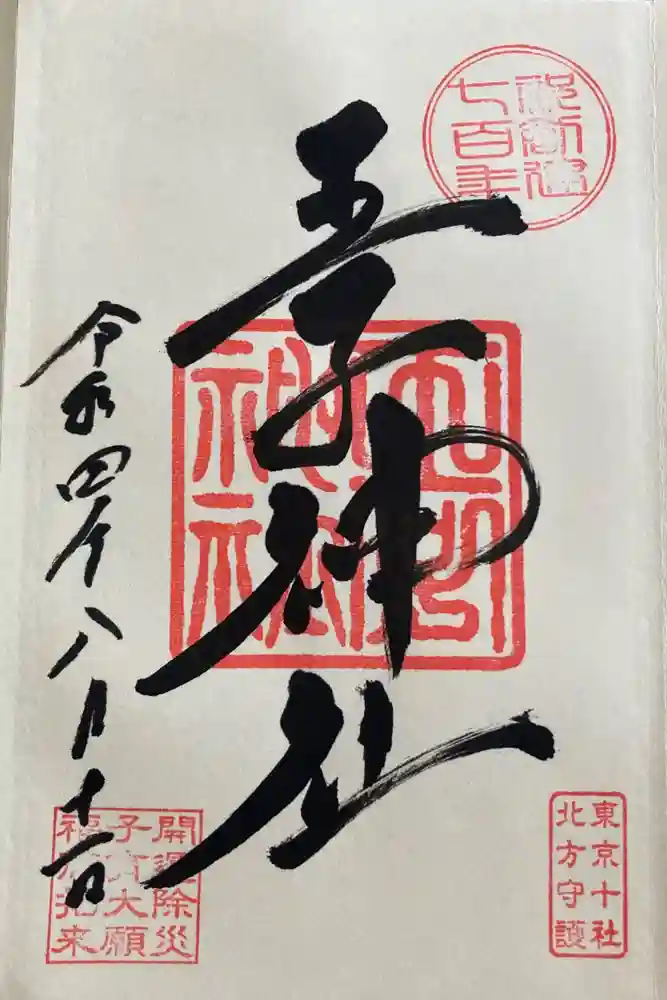 御創建
七百年
王子神社
令和四年八月十一日
開運除災
子育大願
福 招来
東京十社
北方守護